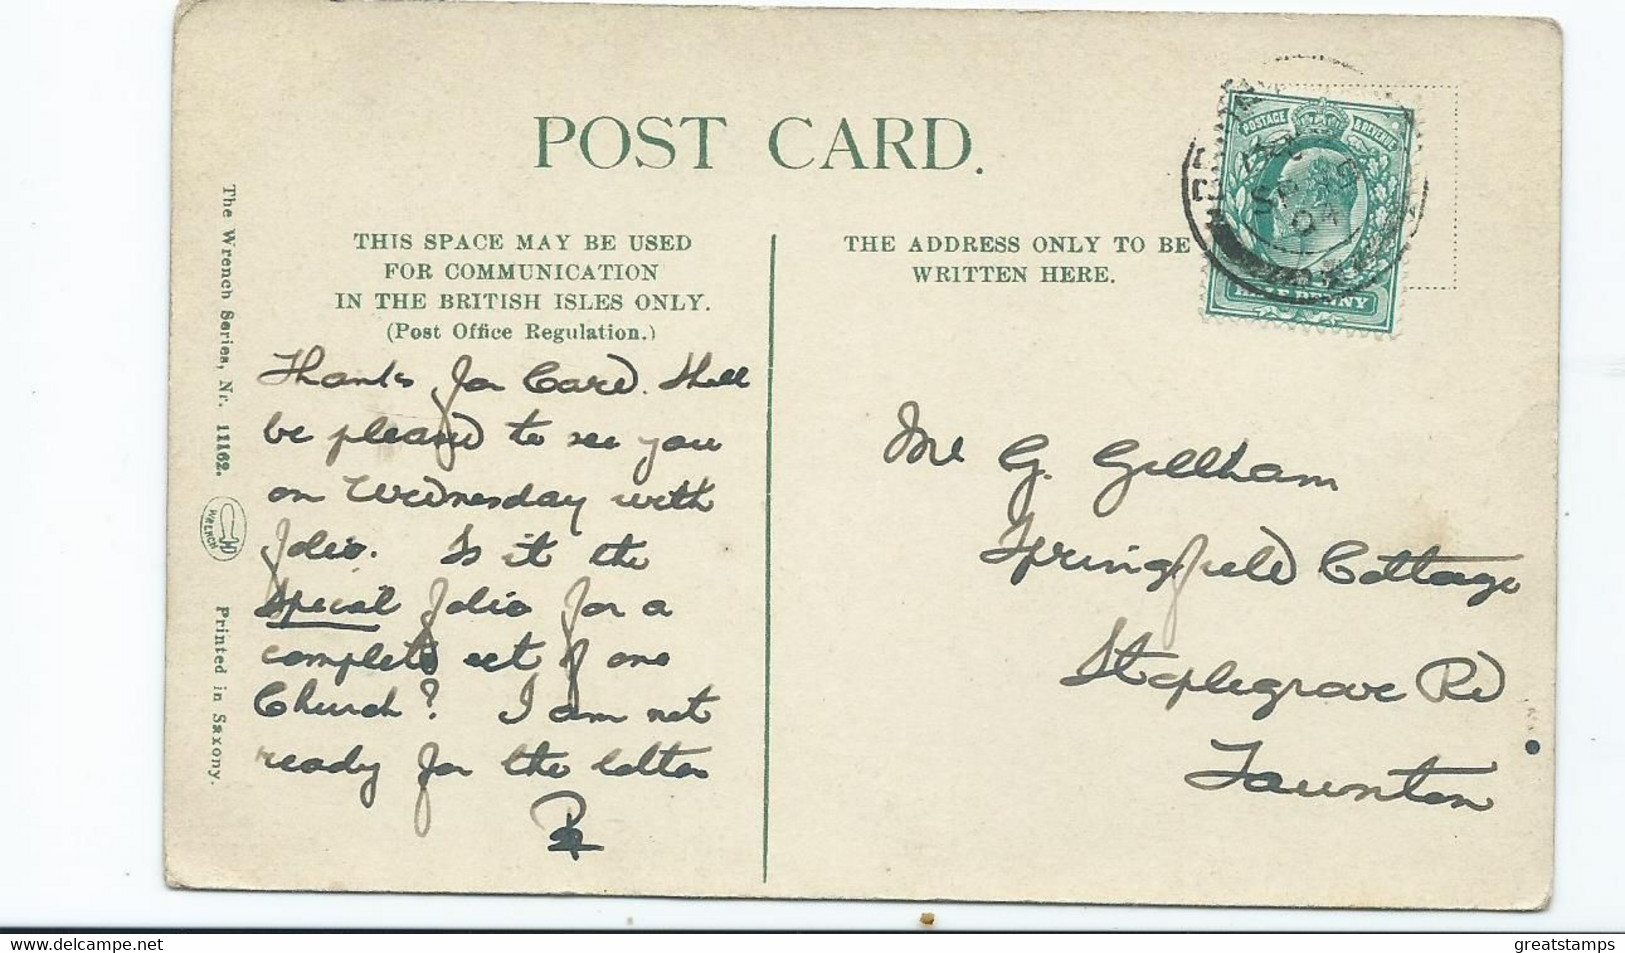 POST CARD.
THIS SPACE MAY BE USED
FOR COMMUNICATION
IN THE BRITISH ISLES ONLY.
(Post Office Regulation.)
THE ADDRESS ONLY TO BE
WRITTEN HERE.
POSTAGE & REVENUE
HALFPENNY
SP 19
The Wrench Series, Nr. 11162.
WRENCH
Printed in Saxony.
Thanks for Card. Shall
be pleased to see you
on Wednesday with
folio. Is it the
special folio for a
complete set of one
Church? I am not
ready for the latter
G. Gillham
Springfield Cottage
Staplegrove Rd
Taunton
www.delcampe.net
greatstamps